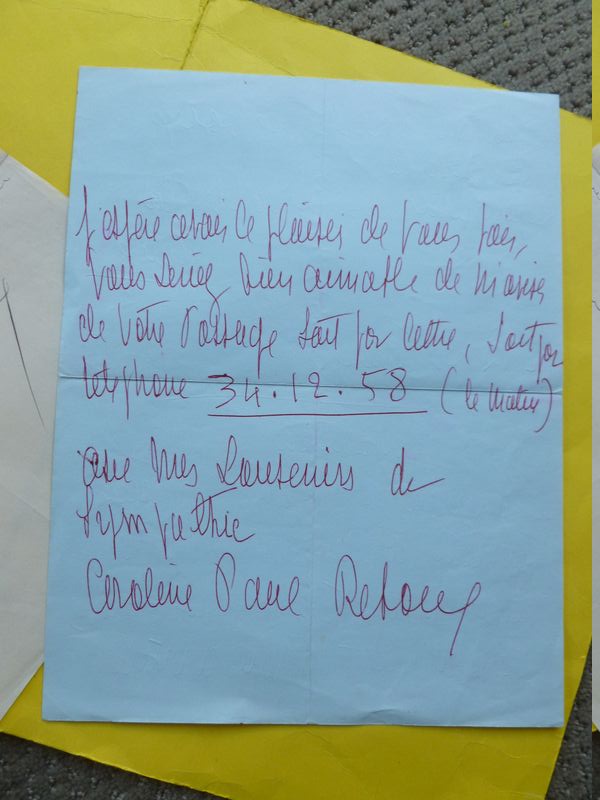 J'espère avoir le plaisir de vous voir,
Vous seriez bien aimable de m'aviser
de votre Passage soit par lettre, soit par
téléphone 34.12.58 (le matin)
avec mes souvenirs de
Sympathie
Caroline Paul Reboux